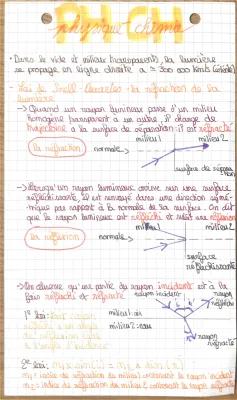 PH-CH
physique chimie
• Dans le vide et milieu transparent, la lumière
se propage en ligne droite à ≈ 300 000 km/s
- Lois de Snell-Descartes : la réfraction de la
lumière
→ Quand un rayon lumineux passe d'un milieu
homogène transparent à un autre, il change de
trajectoire à la surface de séparation : il est réfracté
milieu 1 milieu 2
la réfraction normale
surface de sépara
tion
→ lorsqu'un rayon lumineux arrive sur une surface
réfléchissante, il est renvoyé dans une direction symé-
trique par rapport à la normale de la surface. On dit
que le rayon lumineux est réfléchi et subit une réflexion
milieu 1 milieu 2
la réflexion normale
surface
réfléchissante
→ On observe qu'une partie du rayon incident est à la
fois réfléchi et réfracté
rayon incident rayon
réfléchi
1e loi :
milieu 1 : air
milieu 2 : eau
rayon
réfracté
2e loi :
n1 = indice de réfraction du milieu 1 contenant le rayon incident
n2 = indice de réfraction du milieu 2 contenant le rayon réfracté